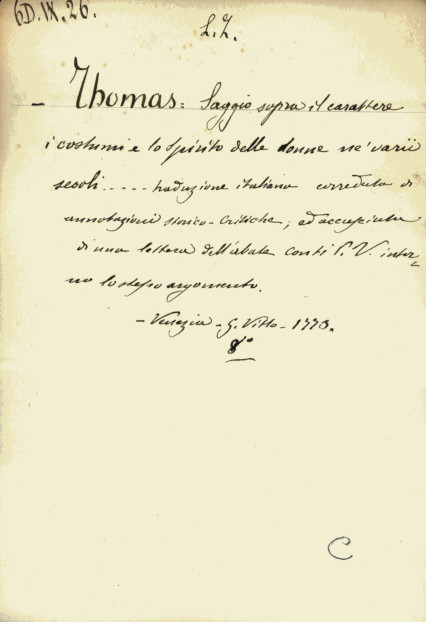 6D.IX.26.
L.I.
- Thomas: Saggio sopra il carattere
i costumi e lo Spirito delle donne ne' varii
secoli ..... traduzione italiana corredata di
annotazioni storico-critiche; ed accresciuta
di una lettera dell'abate Conti P. V. intor-
no lo stesso argomento.
- Venezia - G. Vitto - 1773.
8°
C